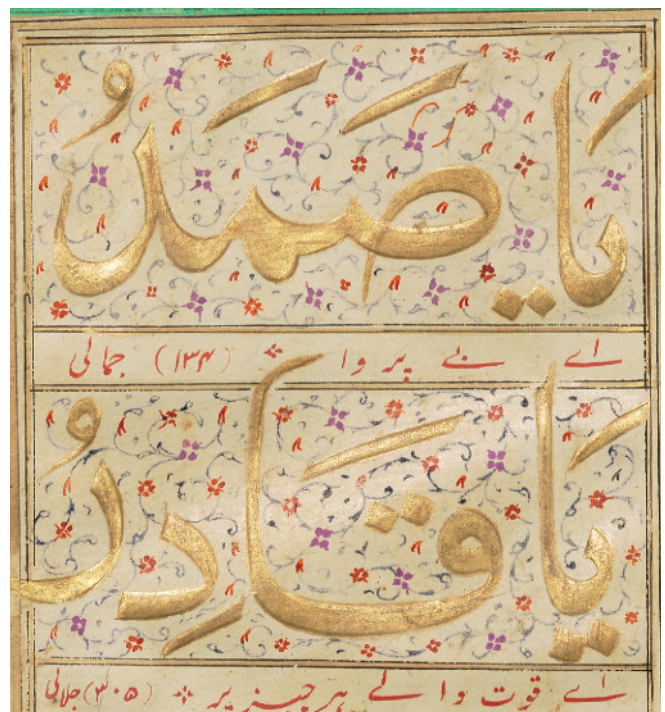 يَا صَمَدُ
اے بے پروا (۱۳۴) جمالی
يَا قَادِرُ
اے قوت والے ہر چیز پر (۳۰۵) جلالی